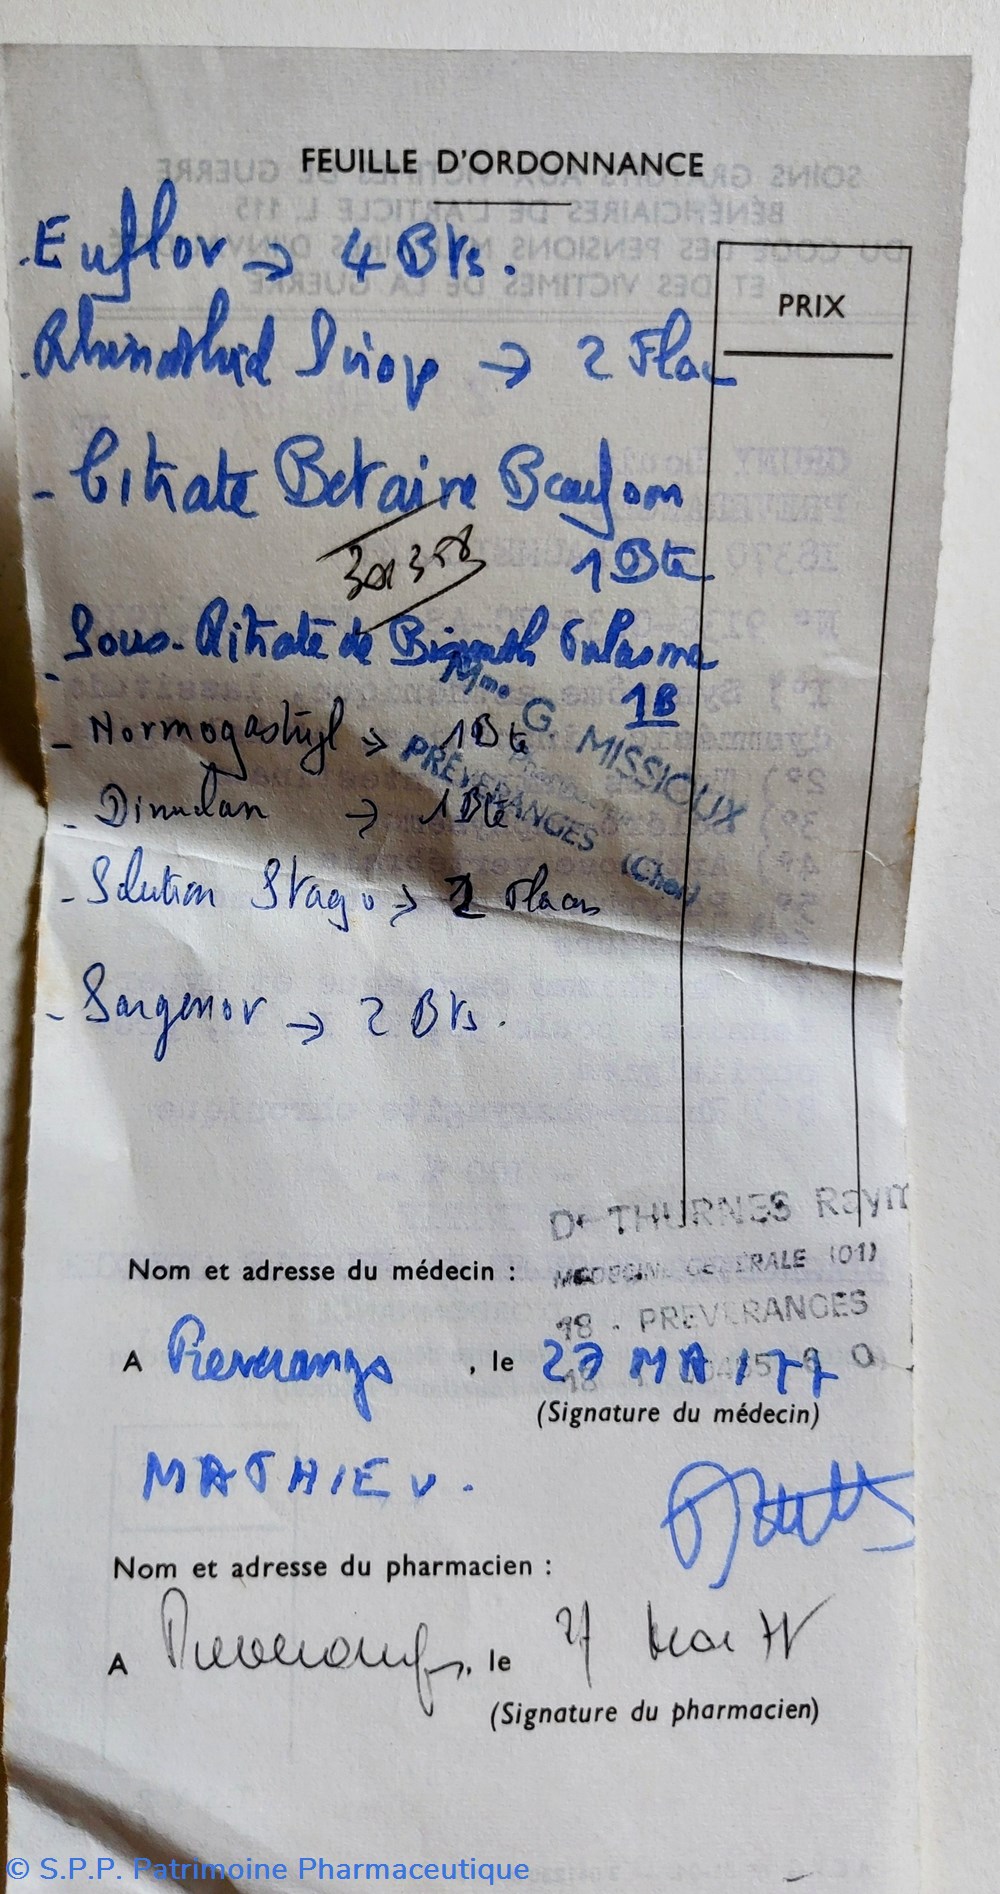 FEUILLE D'ORDONNANCE
Euflor → 4 Bts.
PRIX
Sirop → 2 Flac
- Citrate Betaine Beaufour
1 Bte
Sous-Nitrate de Bismuth Tulasne
1B
Mme G. MISSIOUX
- Normogastryl → 1 Bte
PRÉVERANGES (Cher)
- Dinulan → 1 Bte
- Solution Stago → 2 Flacons
- Sargenor → 2 Bts.
Dr THURNES Raym
Nom et adresse du médecin :
MEDECINE GENERALE (01)
18 - PREVERANGES
A Preveranges, le 27 MAI 77
(Signature du médecin)
MATHIEU.
Nom et adresse du pharmacien :
A Preveranges, le 27 Mai 77
(Signature du pharmacien)
© S.P.P. Patrimoine Pharmaceutique